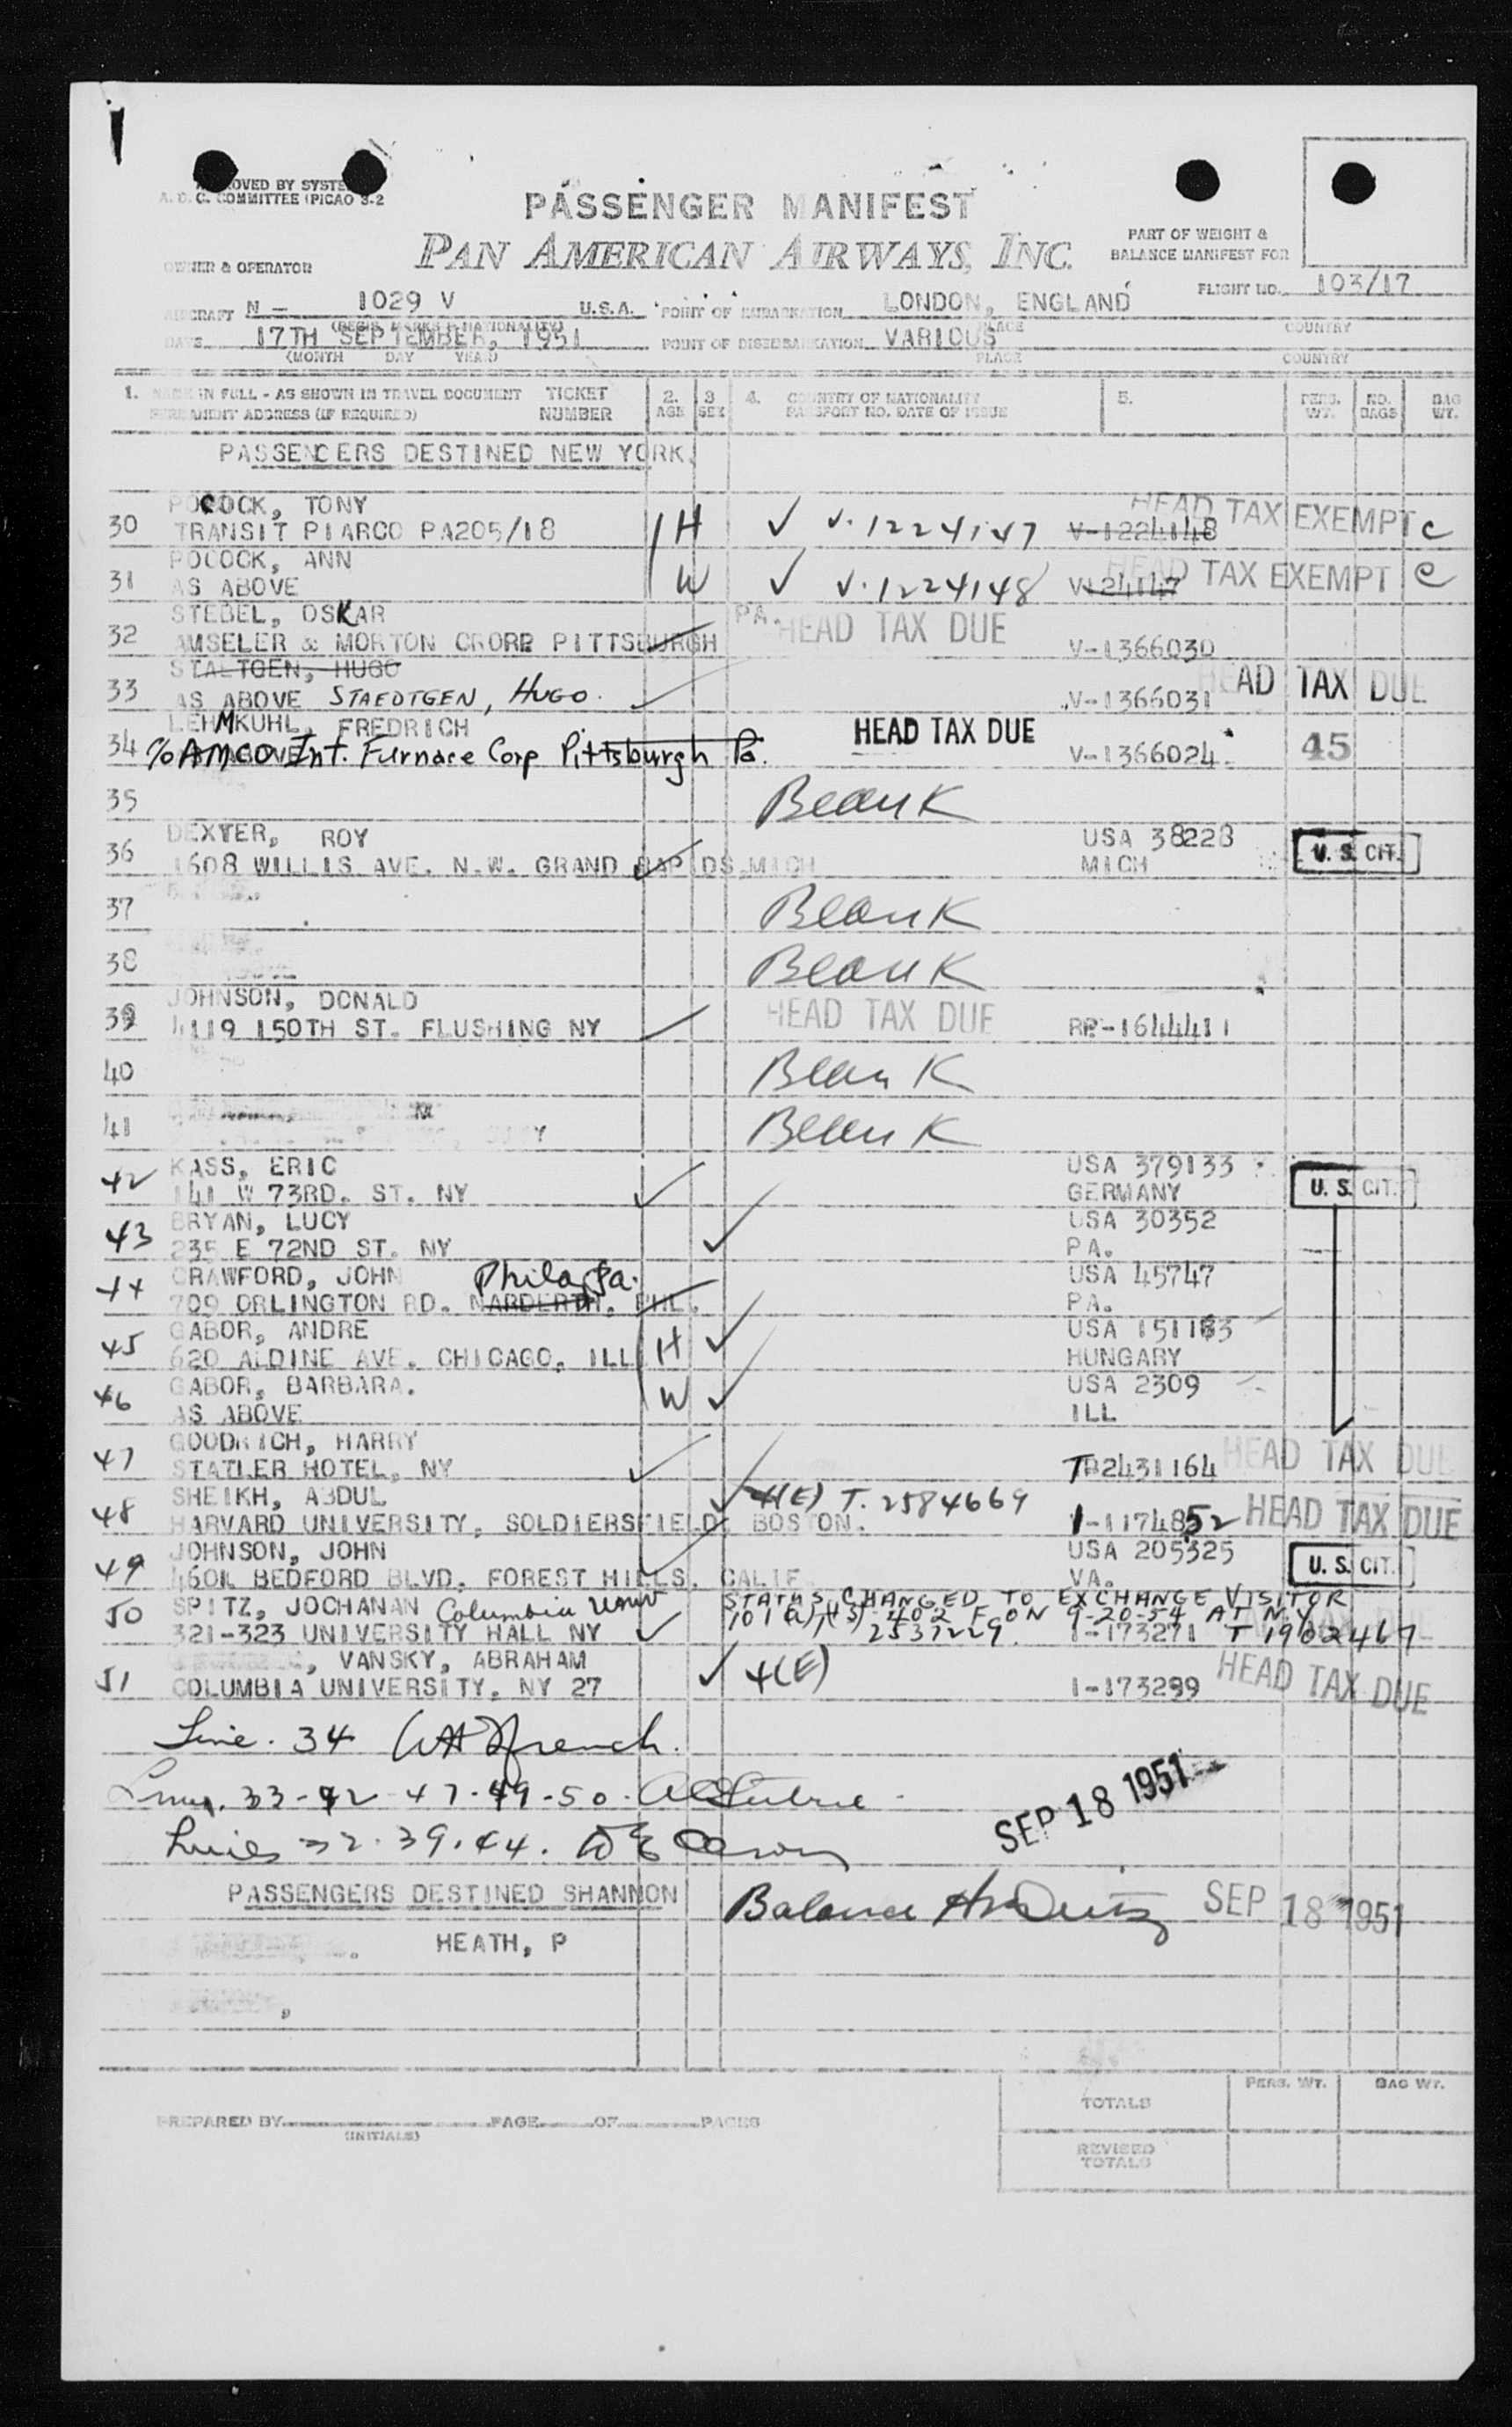 OVED BY SYSTE
A. O. C. COMMITTEE (PICAO 3-2
PASSENGER MANIFEST
PAN AMERICAN AIRWAYS, INC.
PART OF WEIGHT &
BALANCE MANIFEST FOR
OWNER & OPERATOR
FLIGHT NO. 103/17
AIRCRAFT N - 1029 V U.S.A. POINT OF EMBARKATION LONDON, ENGLAND
(REGIS. MARKS & NATIONALITY) PLACE COUNTRY
17TH SEPTEMBER, 1951 POINT OF DISEMBARKATION VARIOUS
(MONTH DAY YEAR) PLACE COUNTRY
1. NAME IN FULL - AS SHOWN IN TRAVEL DOCUMENT TICKET 2. 3 4. COUNTRY OF NATIONALITY 5. PERS. NO. BAG
PERMANENT ADDRESS (IF REQUIRED) NUMBER AGE SEX PASSPORT NO. DATE OF ISSUE WT. BAGS WT.
PASSENGERS DESTINED NEW YORK.
POCOCK, TONY HEAD TAX EXEMPT C
30 TRANSIT PIARCO PA205/18 H ✓ V-1224147 V-1224148
POCOCK, ANN HEAD TAX EXEMPT C
31 AS ABOVE W ✓ V-1224148 V-24147
STEBEL, OSKAR PA. HEAD TAX DUE
32 AMSELER & MORTON CRORP PITTSBURGH V-1366030
STALTGEN, HUGO
33 AS ABOVE STAEDTGEN, HUGO. V-1366031 HEAD TAX DUE
LEHMKUHL, FREDRICH HEAD TAX DUE
34 % AMCO Int. Furnace Corp Pittsburgh Pa. V-1366024 45
35 Blank
DEXTER, ROY USA 38228 U.S. CIT.
36 1608 WILLIS AVE. N.W. GRAND RAPIDS, MICH MICH
37 Blank
38 Blank
JOHNSON, DONALD HEAD TAX DUE
39 4119 150TH ST. FLUSHING NY RP-1644411
40 Blank
41 Blank
KASS, ERIC USA 379133 U.S. CIT.
42 141 W 73RD. ST. NY ✓ GERMANY
BRYAN, LUCY USA 30352
43 235 E 72ND ST. NY ✓ PA.
CRAWFORD, JOHN Phila Pa. USA 45747
44 709 ORLINGTON RD. NARDERTH, PHIL. PA.
GABOR, ANDRE USA 151183
45 620 ALDINE AVE. CHICAGO, ILL H ✓ HUNGARY
GABOR, BARBARA. USA 2309
46 AS ABOVE W ✓ ILL
GOODRICH, HARRY HEAD TAX DUE
47 STATLER HOTEL, NY ✓ TR2431164
SHEIKH, ABDUL ✓ 4(E) T. 2584669
48 HARVARD UNIVERSITY, SOLDIERSFIELD, BOSTON. I-1174852 HEAD TAX DUE
JOHNSON, JOHN USA 205325 U.S. CIT.
49 4601 BEDFORD BLVD. FOREST HILLS, CALIF. VA.
SPITZ, JOCHANAN Columbia Univ STATUS CHANGED TO EXCHANGE VISITOR
50 101(a)(15) 402 F ON 9-20-54 AT N.Y.
321-323 UNIVERSITY HALL NY ✓ 2537229. I-173271 T 1902467
, VANSKY, ABRAHAM ✓ 4(E)
51 COLUMBIA UNIVERSITY, NY 27 I-173299 HEAD TAX DUE
Line. 34
Lines. 33-42-47-49-50.
SEP 18 1951
Lines 32. 39. 44.
PASSENGERS DESTINED SHANNON Balance SEP 18 1951
HEATH, P
PREPARED BY PAGE OF PAGES
(INITIALS)
PERS. WT. BAG WT.
TOTALS
REVISED
TOTALS